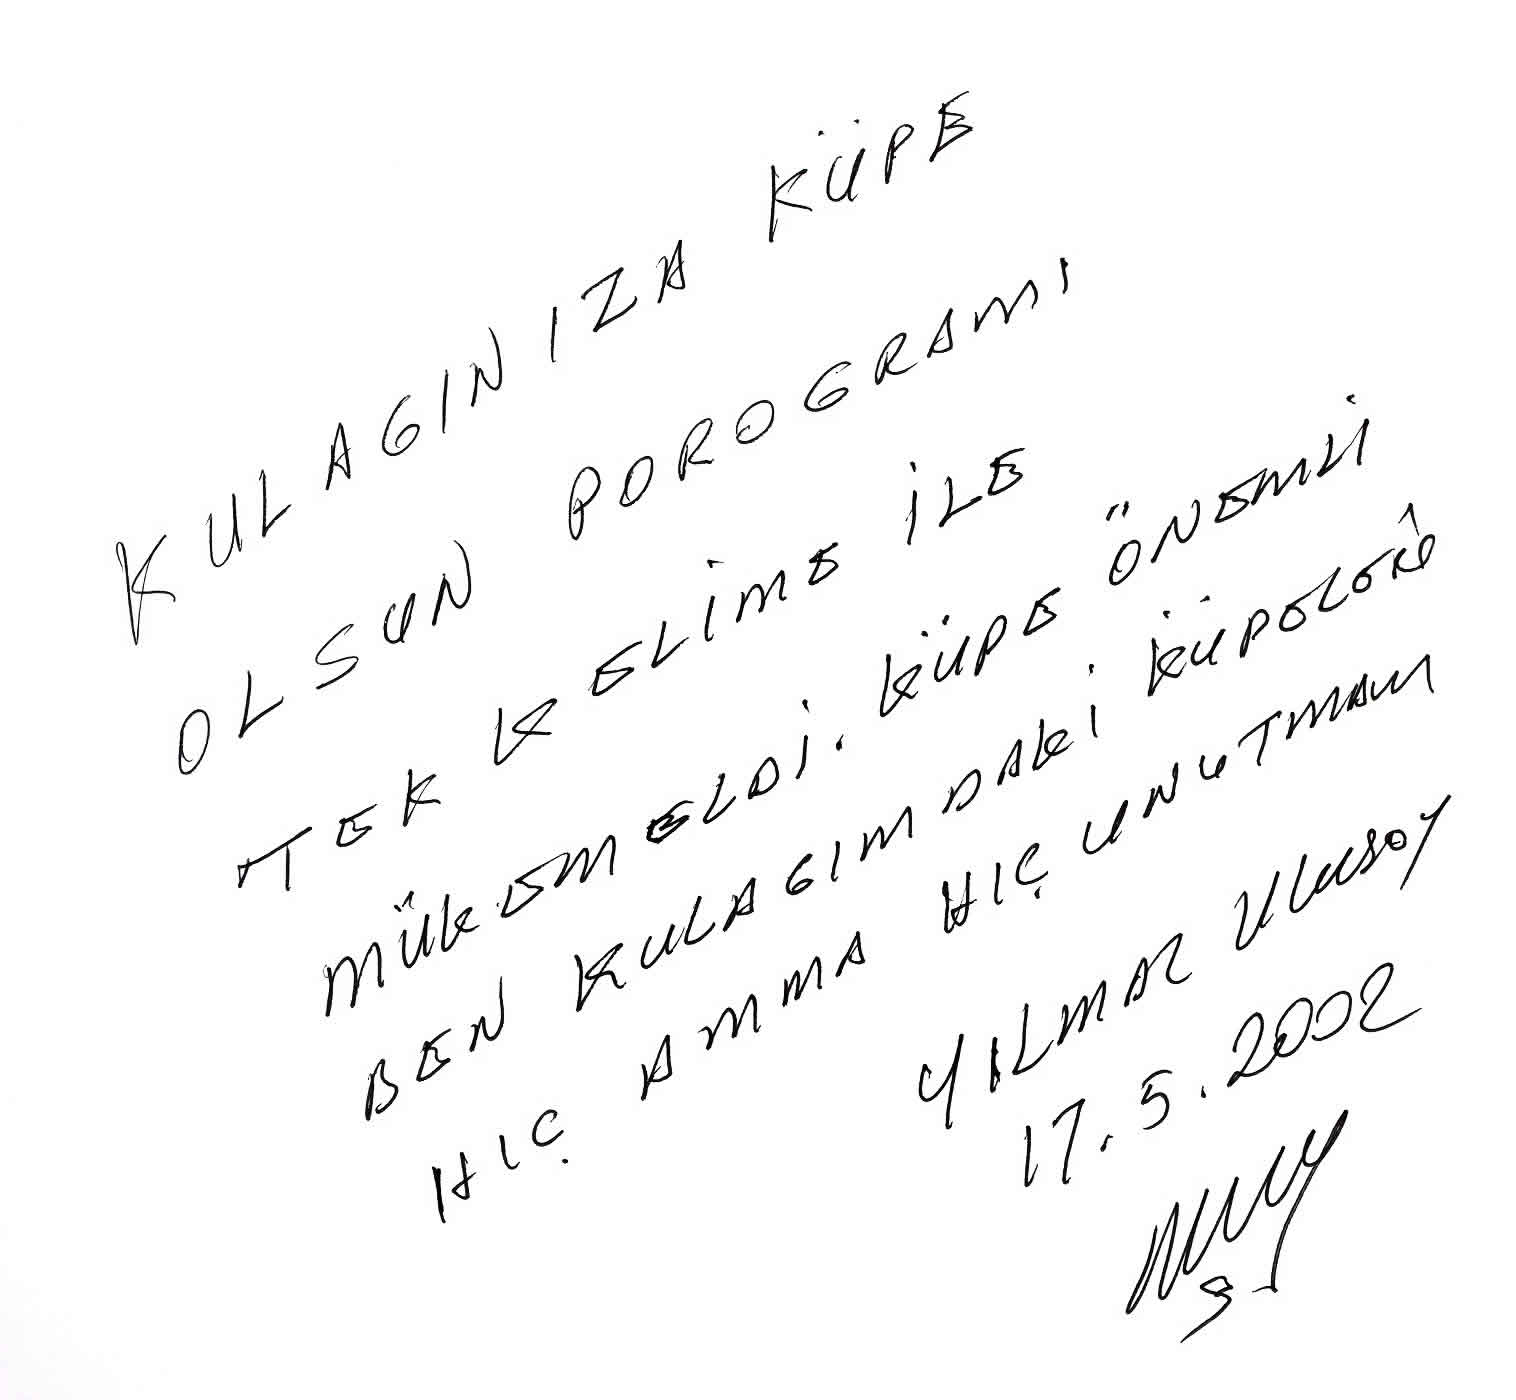 KULAGINIZA KÜPE
OLSUN POROGRAMI
TEK KELİME İLE
MÜKEMELDİ. KÜPE ÖNEMLİ
BEN KULAGIMDAKİ KÜPELERİ
HIÇ AMMA HIÇ UNUTMAM
YILMAZ ULUSOY
17.5.2002